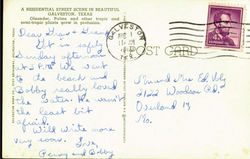 A RESIDENTIAL STREET SCENE IN BEAUTIFUL
GALVESTON, TEXAS
Oleander, Palms and other tropic and
semi-tropic plants grow in profusion.
POST CARD
GALVESTON
TEX
Dear Grace
Got in safely
Sunday afternoon
We went
to the beach and
Bobby really loved
the water. He wasn't
the least bit
afraid.
Will write more
very soon. Love,
Penny and Bobby
Mr and Mrs Ed
Woodson Rd.
Overland 14
Mo.